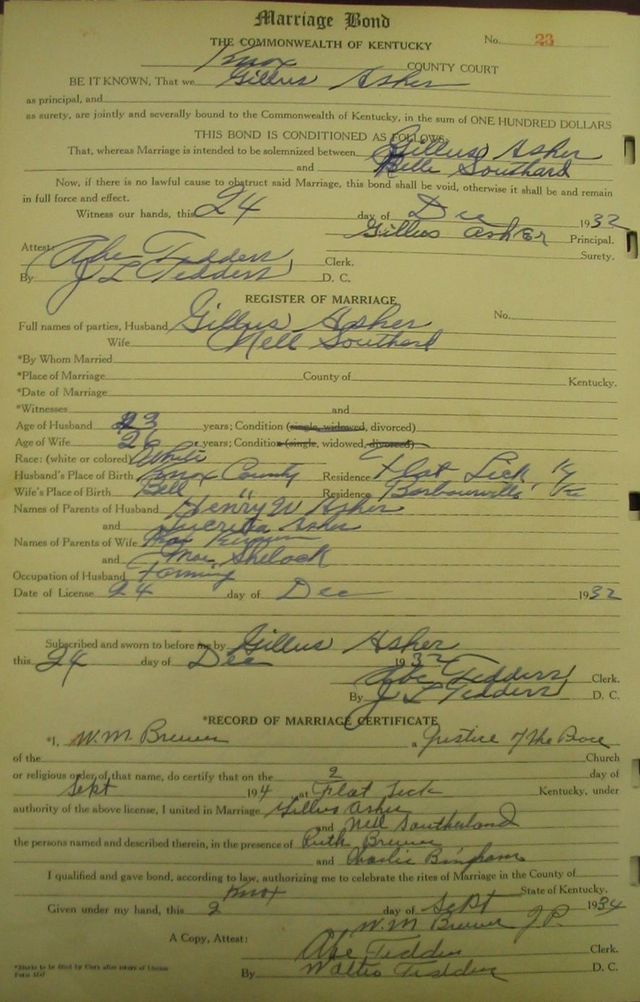 Marriage Bond
THE COMMONWEALTH OF KENTUCKY No. 23
Knox COUNTY COURT
BE IT KNOWN, That we Gillus Asher
as principal, and
as surety, are jointly and severally bound to the Commonwealth of Kentucky, in the sum of ONE HUNDRED DOLLARS
THIS BOND IS CONDITIONED AS FOLLOWS
That, whereas Marriage is intended to be solemnized between Gillus Asher
and Southard
Now, if there is no lawful cause to obstruct said Marriage, this bond shall be void, otherwise it shall be and remain
in full force and effect.
Witness our hands, this 24 day of Dec 1932
Gillus Asher Principal.
Surety.
Attest: Abe Tedders Clerk.
By J L Tedders D. C.
REGISTER OF MARRIAGE
Full names of parties, Husband Gillus Asher No.
Wife Nell Southard
*By Whom Married
*Place of Marriage County of Kentucky.
*Date of Marriage
*Witnesses and
Age of Husband 23 years; Condition (single, widowed, divorced)
Age of Wife 26 years; Condition (single, widowed, divorced)
Race: (white or colored) White
Husband's Place of Birth Knox County Residence Flat Lick Ky
Wife's Place of Birth Bell " Residence Barbourville Ky
Names of Parents of Husband Henry W Asher
and Asher
Names of Parents of Wife
and
Occupation of Husband Farming
Date of License 24 day of Dec 1932
Subscribed and sworn to before me by Gillus Asher
this 24 day of Dec 1932
Abe Tedders Clerk.
By J L Tedders D. C.
*RECORD OF MARRIAGE CERTIFICATE
*I, W.M. Brewer a Justice of the Peace
of the Church
or religious order of that name, do certify that on the 2 day of
Sept 194 at Flat Lick Kentucky, under
authority of the above license, I united in Marriage Gillus Asher
and Nell Southerland
the persons named and described therein, in the presence of Ruth Brewer
and Charlie Bingham
I qualified and gave bond, according to law, authorizing me to celebrate the rites of Marriage in the County of
Knox State of Kentucky.
Given under my hand, this 2 day of Sept 1934
W.M Brewer J.P.
A Copy, Attest: Abe Tedders Clerk.
By Tedders D. C.
*Blanks to be filled by Clerk after return of License